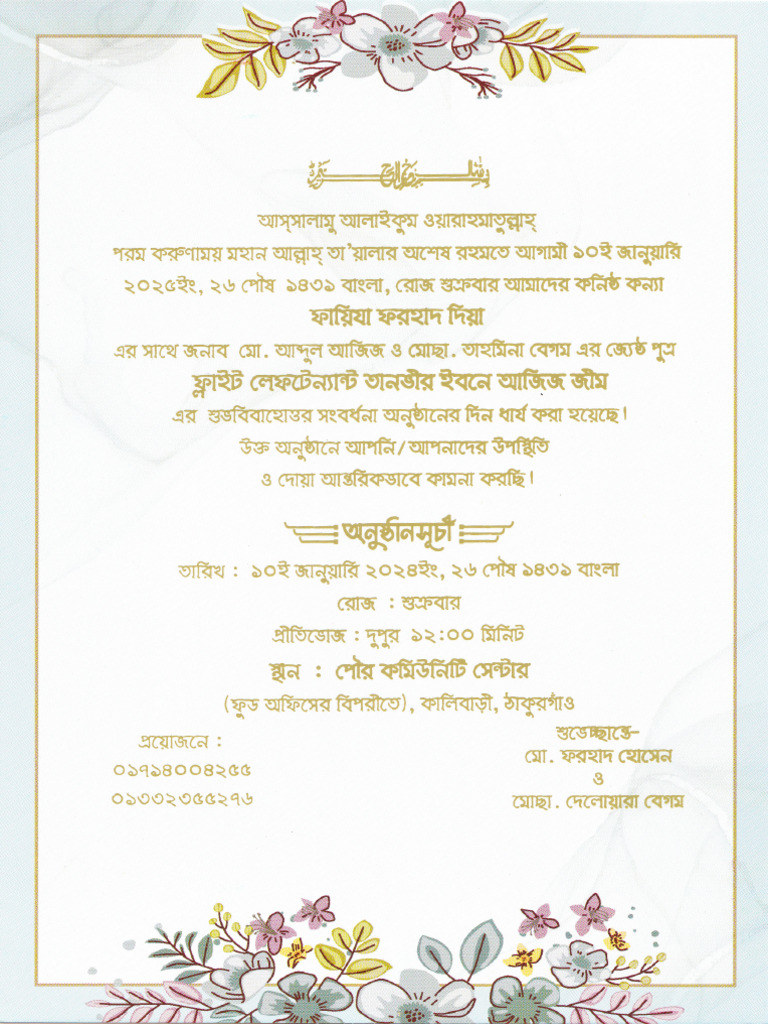 আস্‌সালামু আলাইকুম ওয়ারাহমাতুল্লাহ্
পরম করুণাময় মহান আল্লাহ্ তা'য়ালার অশেষ রহমতে আগামী ১০ই জানুয়ারি
২০২৫ইং, ২৬ পৌষ ১৪৩১ বাংলা, রোজ শুক্রবার আমাদের কনিষ্ঠ কন্যা
ফায়িযা ফরহাদ দিয়া
এর সাথে জনাব মো. আব্দুল আজিজ ও মোছা. তাহমিনা বেগম এর জ্যেষ্ঠ পুত্র
ফ্লাইট লেফটেন্যান্ট তানভীর ইবনে আজিজ জীম
এর শুভবিবাহোত্তর সংবর্ধনা অনুষ্ঠানের দিন ধার্য করা হয়েছে।
উক্ত অনুষ্ঠানে আপনি/আপনাদের উপস্থিতি
ও দোয়া আন্তরিকভাবে কামনা করছি।
অনুষ্ঠানসূচী
তারিখ : ১০ই জানুয়ারি ২০২৪ইং, ২৬ পৌষ ১৪৩১ বাংলা
রোজ : শুক্রবার
প্রীতিভোজ : দুপুর ১২:০০ মিনিট
স্থান : পৌর কমিউনিটি সেন্টার
(ফুড অফিসের বিপরীতে), কালিবাড়ী, ঠাকুরগাঁও
প্রয়োজনে :
০১৭১৪০০৪২৫৫
০১৩৩২৩৫৫২৭৬
শুভেচ্ছান্তে-
মো. ফরহাদ হোসেন
ও
মোছা. দেলোয়ারা বেগম